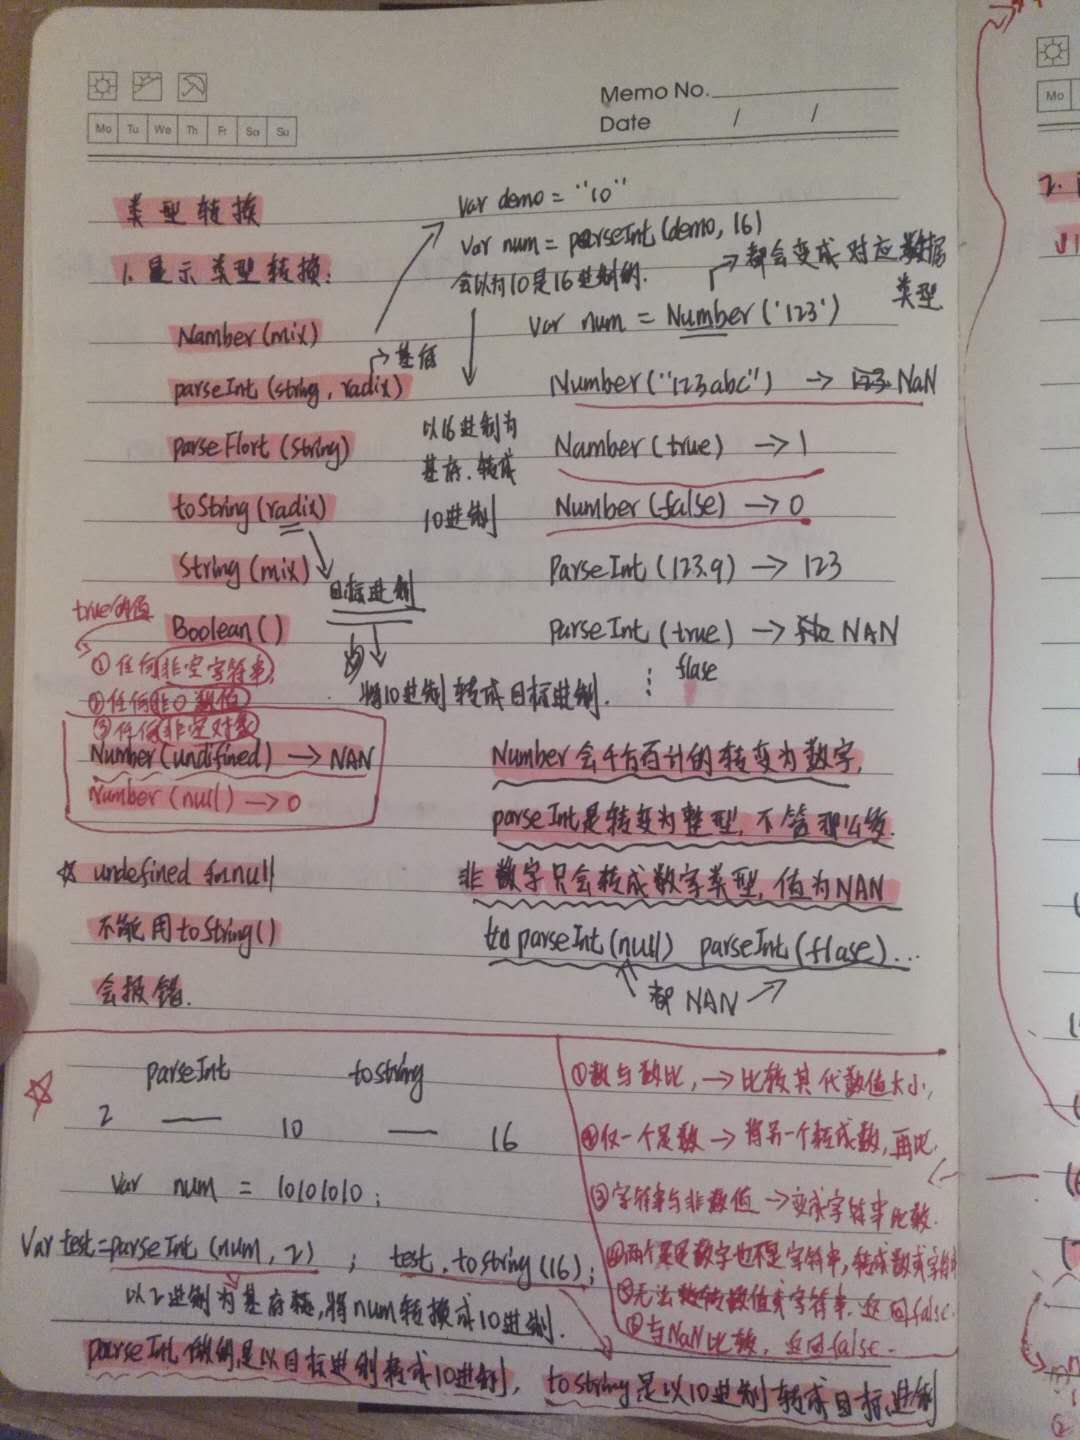 Memo No.
Date / /
Mo Tu We Th Fr Sa Su
类型转换
1. 显示类型转换:
Number(mix)
parseInt(string, radix)
→基低
parseFlort(String)
toString(radix)
String(mix)
Boolean()
目标进制
将10进制转成目标进制.
true的值
①任何非空字符串,
②任何非0数值
③任何非空对象
Number(undifined) → NAN
Number(null) → 0
☆ undefined 和null
不能用toString()
会报错.
Var demo = "10"
Var num = parseInt(demo, 16)
会以为10是16进制的.
以16进制为
基底.转成
10进制
→都会变成对应数据
类型
Var num = Number('123')
Number("123abc") → NaN
Number(true) → 1
Number(false) → 0
ParseInt(123.9) → 123
parseInt(true) → NAN
flase
Number会千方百计的转变为数字,
parseInt是转变为整型,不管那么多.
非数字只会转成数字类型,值为NAN
parseInt(null) parseInt(flase)...
都 NAN
☆ parseInt toString
2 — 10 — 16
Var num = 10101010;
Var test=parseInt(num, 2) ; test.toString(16);
以2进制为基底,将num转换成10进制.
parseInt 做的是以目标进制转成10进制, toString是以10进制转成目标进制
①数与数比,→比较其代数值大小,
②仅一个是数→将另一个转成数,再比.
③字符串与非数值→变成字符串比较.
④两个既是数字也不是字符串,转成数或字符串
⑤无法转数值或字符串.返回false.
⑥与NaN比较,返回false.
Mo
2.